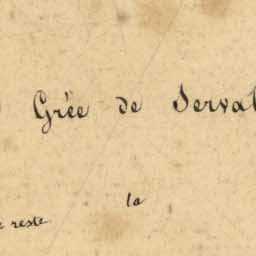 Grée de Serval
la
reste